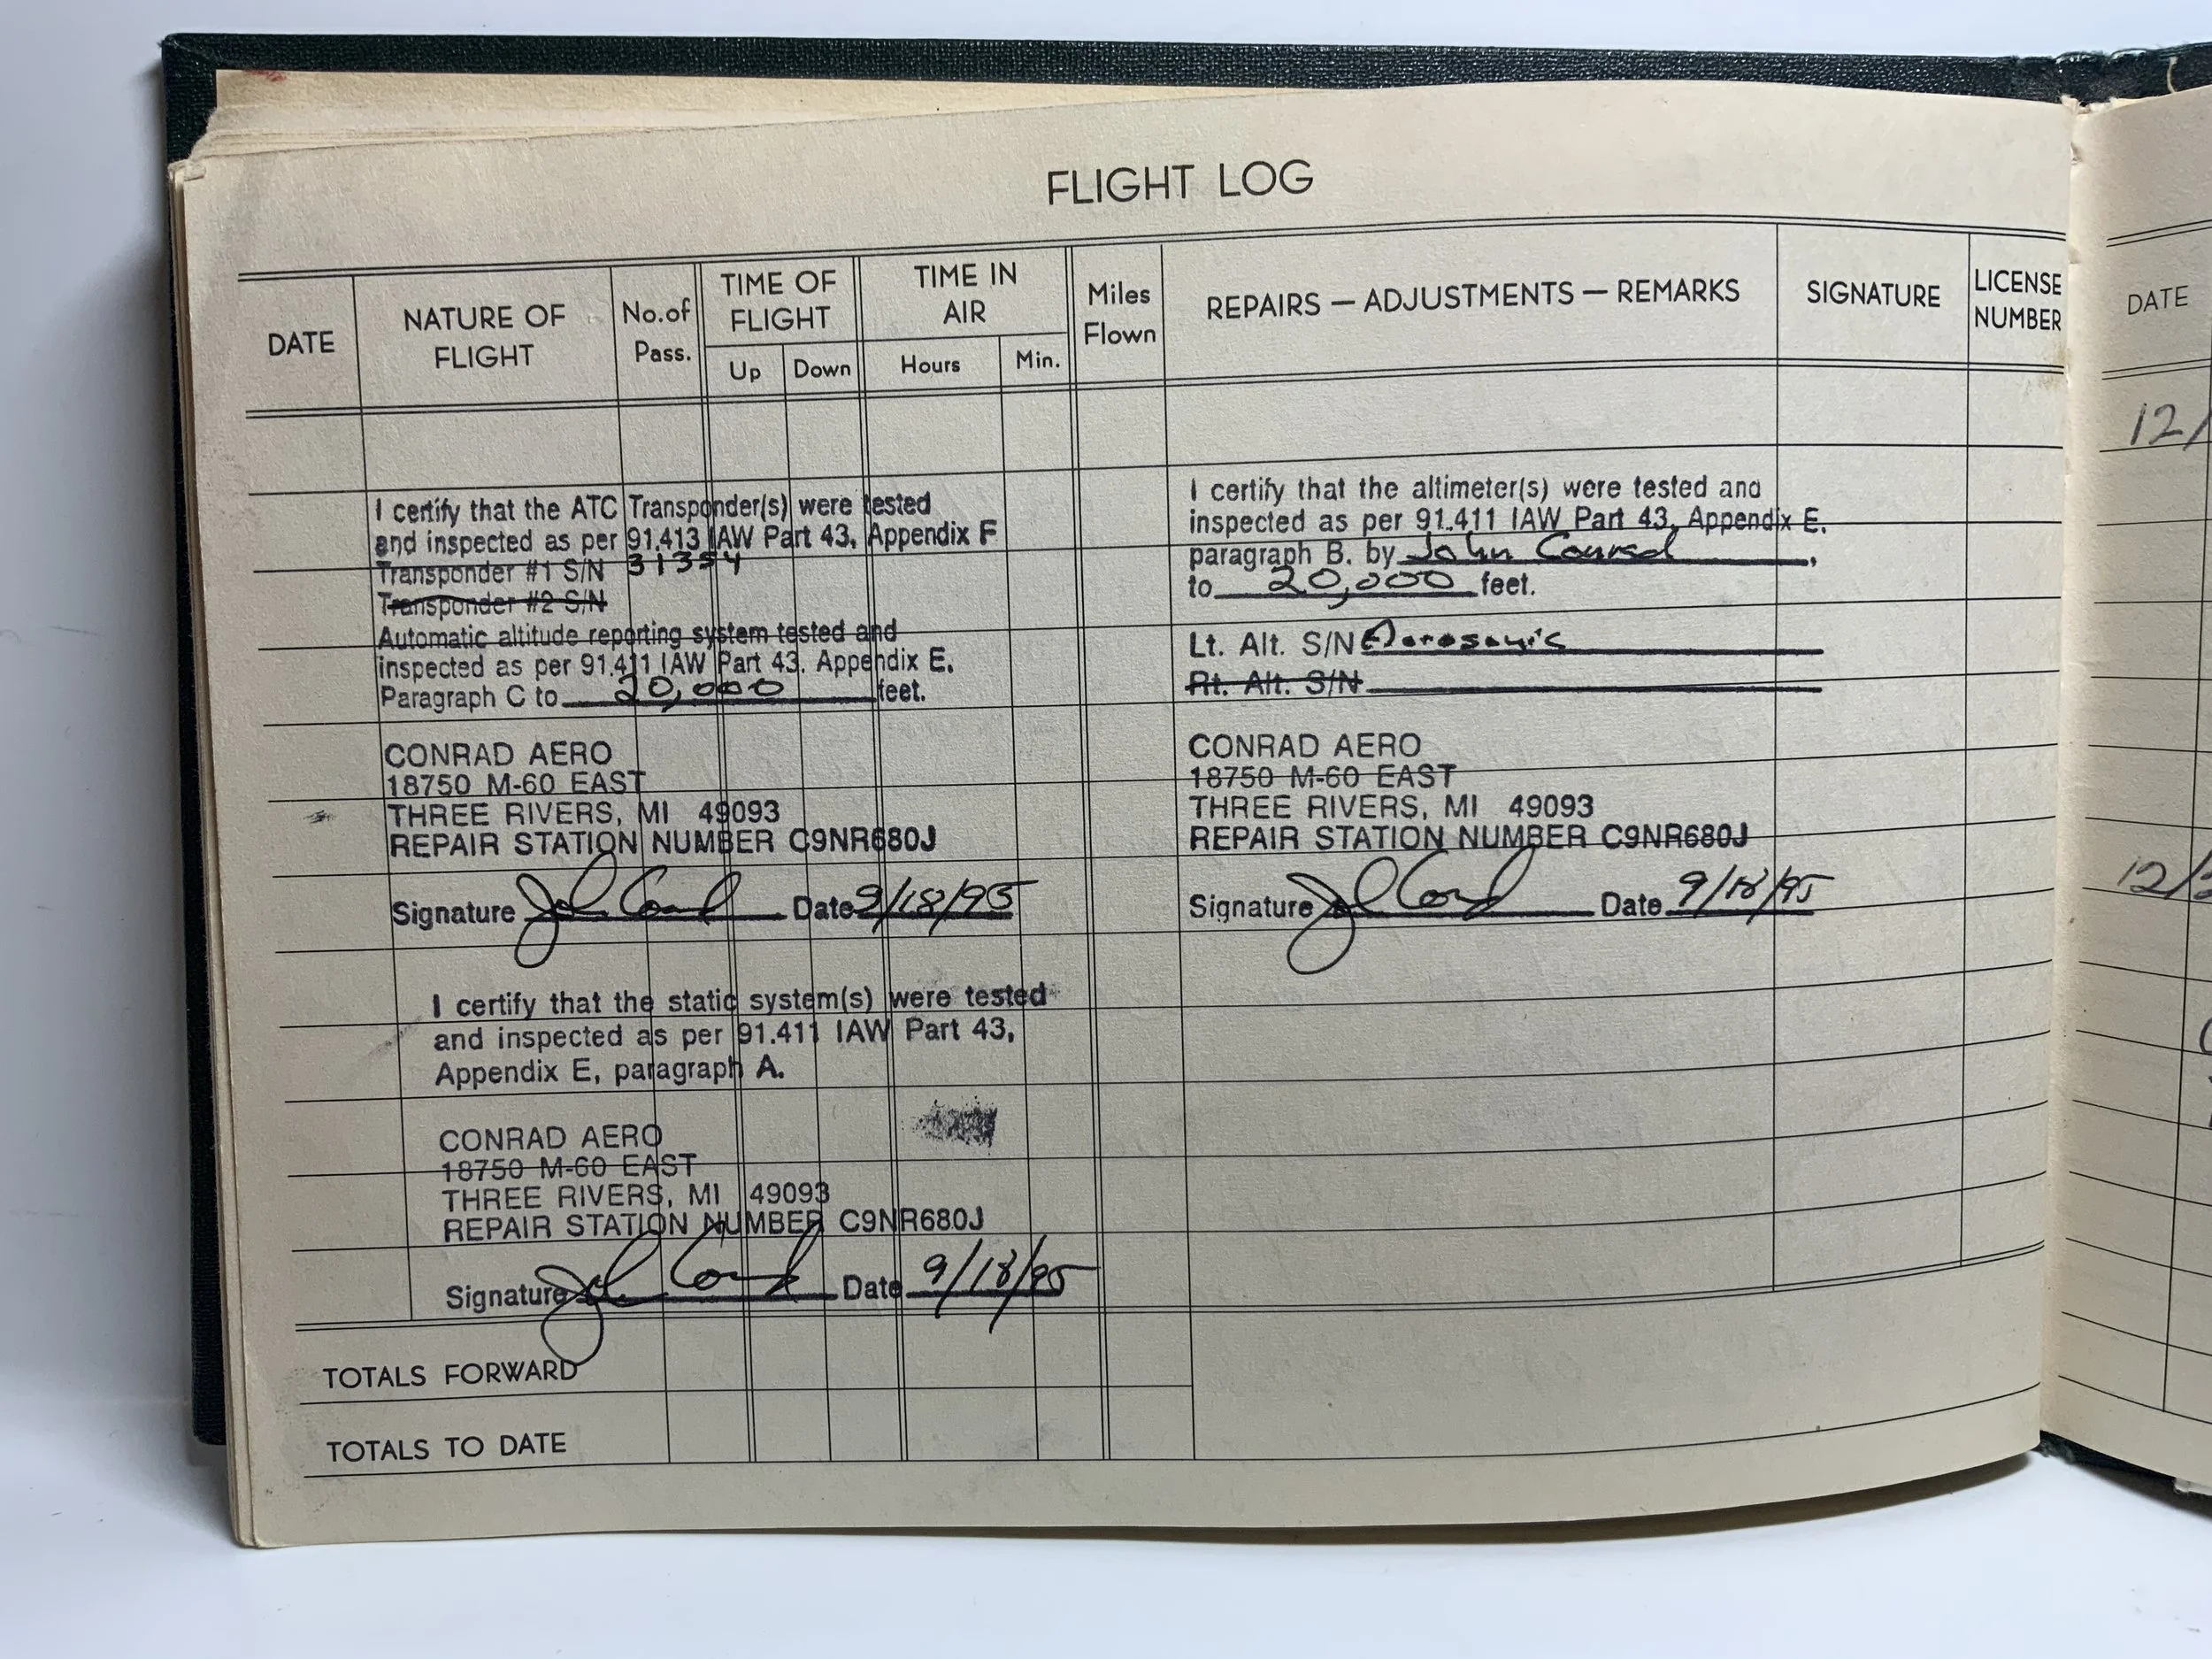 FLIGHT LOG
DATE
NATURE OF
FLIGHT
No.of
Pass.
TIME OF
FLIGHT
Up
Down
TIME IN
AIR
Hours
Min.
Miles
Flown
REPAIRS — ADJUSTMENTS — REMARKS
SIGNATURE
LICENSE
NUMBER
I certify that the ATC Transponder(s) were tested
and inspected as per 91.413 IAW Part 43, Appendix F
Transponder #1 S/N 31354
Transponder #2 S/N
Automatic altitude reporting system tested and
inspected as per 91.411 IAW Part 43. Appendix E.
Paragraph C to 20,000 feet.
CONRAD AERO
18750 M-60 EAST
THREE RIVERS, MI 49093
REPAIR STATION NUMBER C9NR680J
Signature John Conrad Date 9/18/95
I certify that the static system(s) were tested
and inspected as per 91.411 IAW Part 43,
Appendix E, paragraph A.
CONRAD AERO
18750 M-60 EAST
THREE RIVERS, MI 49093
REPAIR STATION NUMBER C9NR680J
Signature John Conrad Date 9/18/95
I certify that the altimeter(s) were tested and
inspected as per 91.411 IAW Part 43, Appendix E.
paragraph B. by John Conrad,
to 20,000 feet.
Lt. Alt. S/N Aerosonic
Rt. Alt. S/N
CONRAD AERO
18750 M-60 EAST
THREE RIVERS, MI 49093
REPAIR STATION NUMBER C9NR680J
Signature John Conrad Date 9/18/95
TOTALS FORWARD
TOTALS TO DATE
DATE
12/
12/